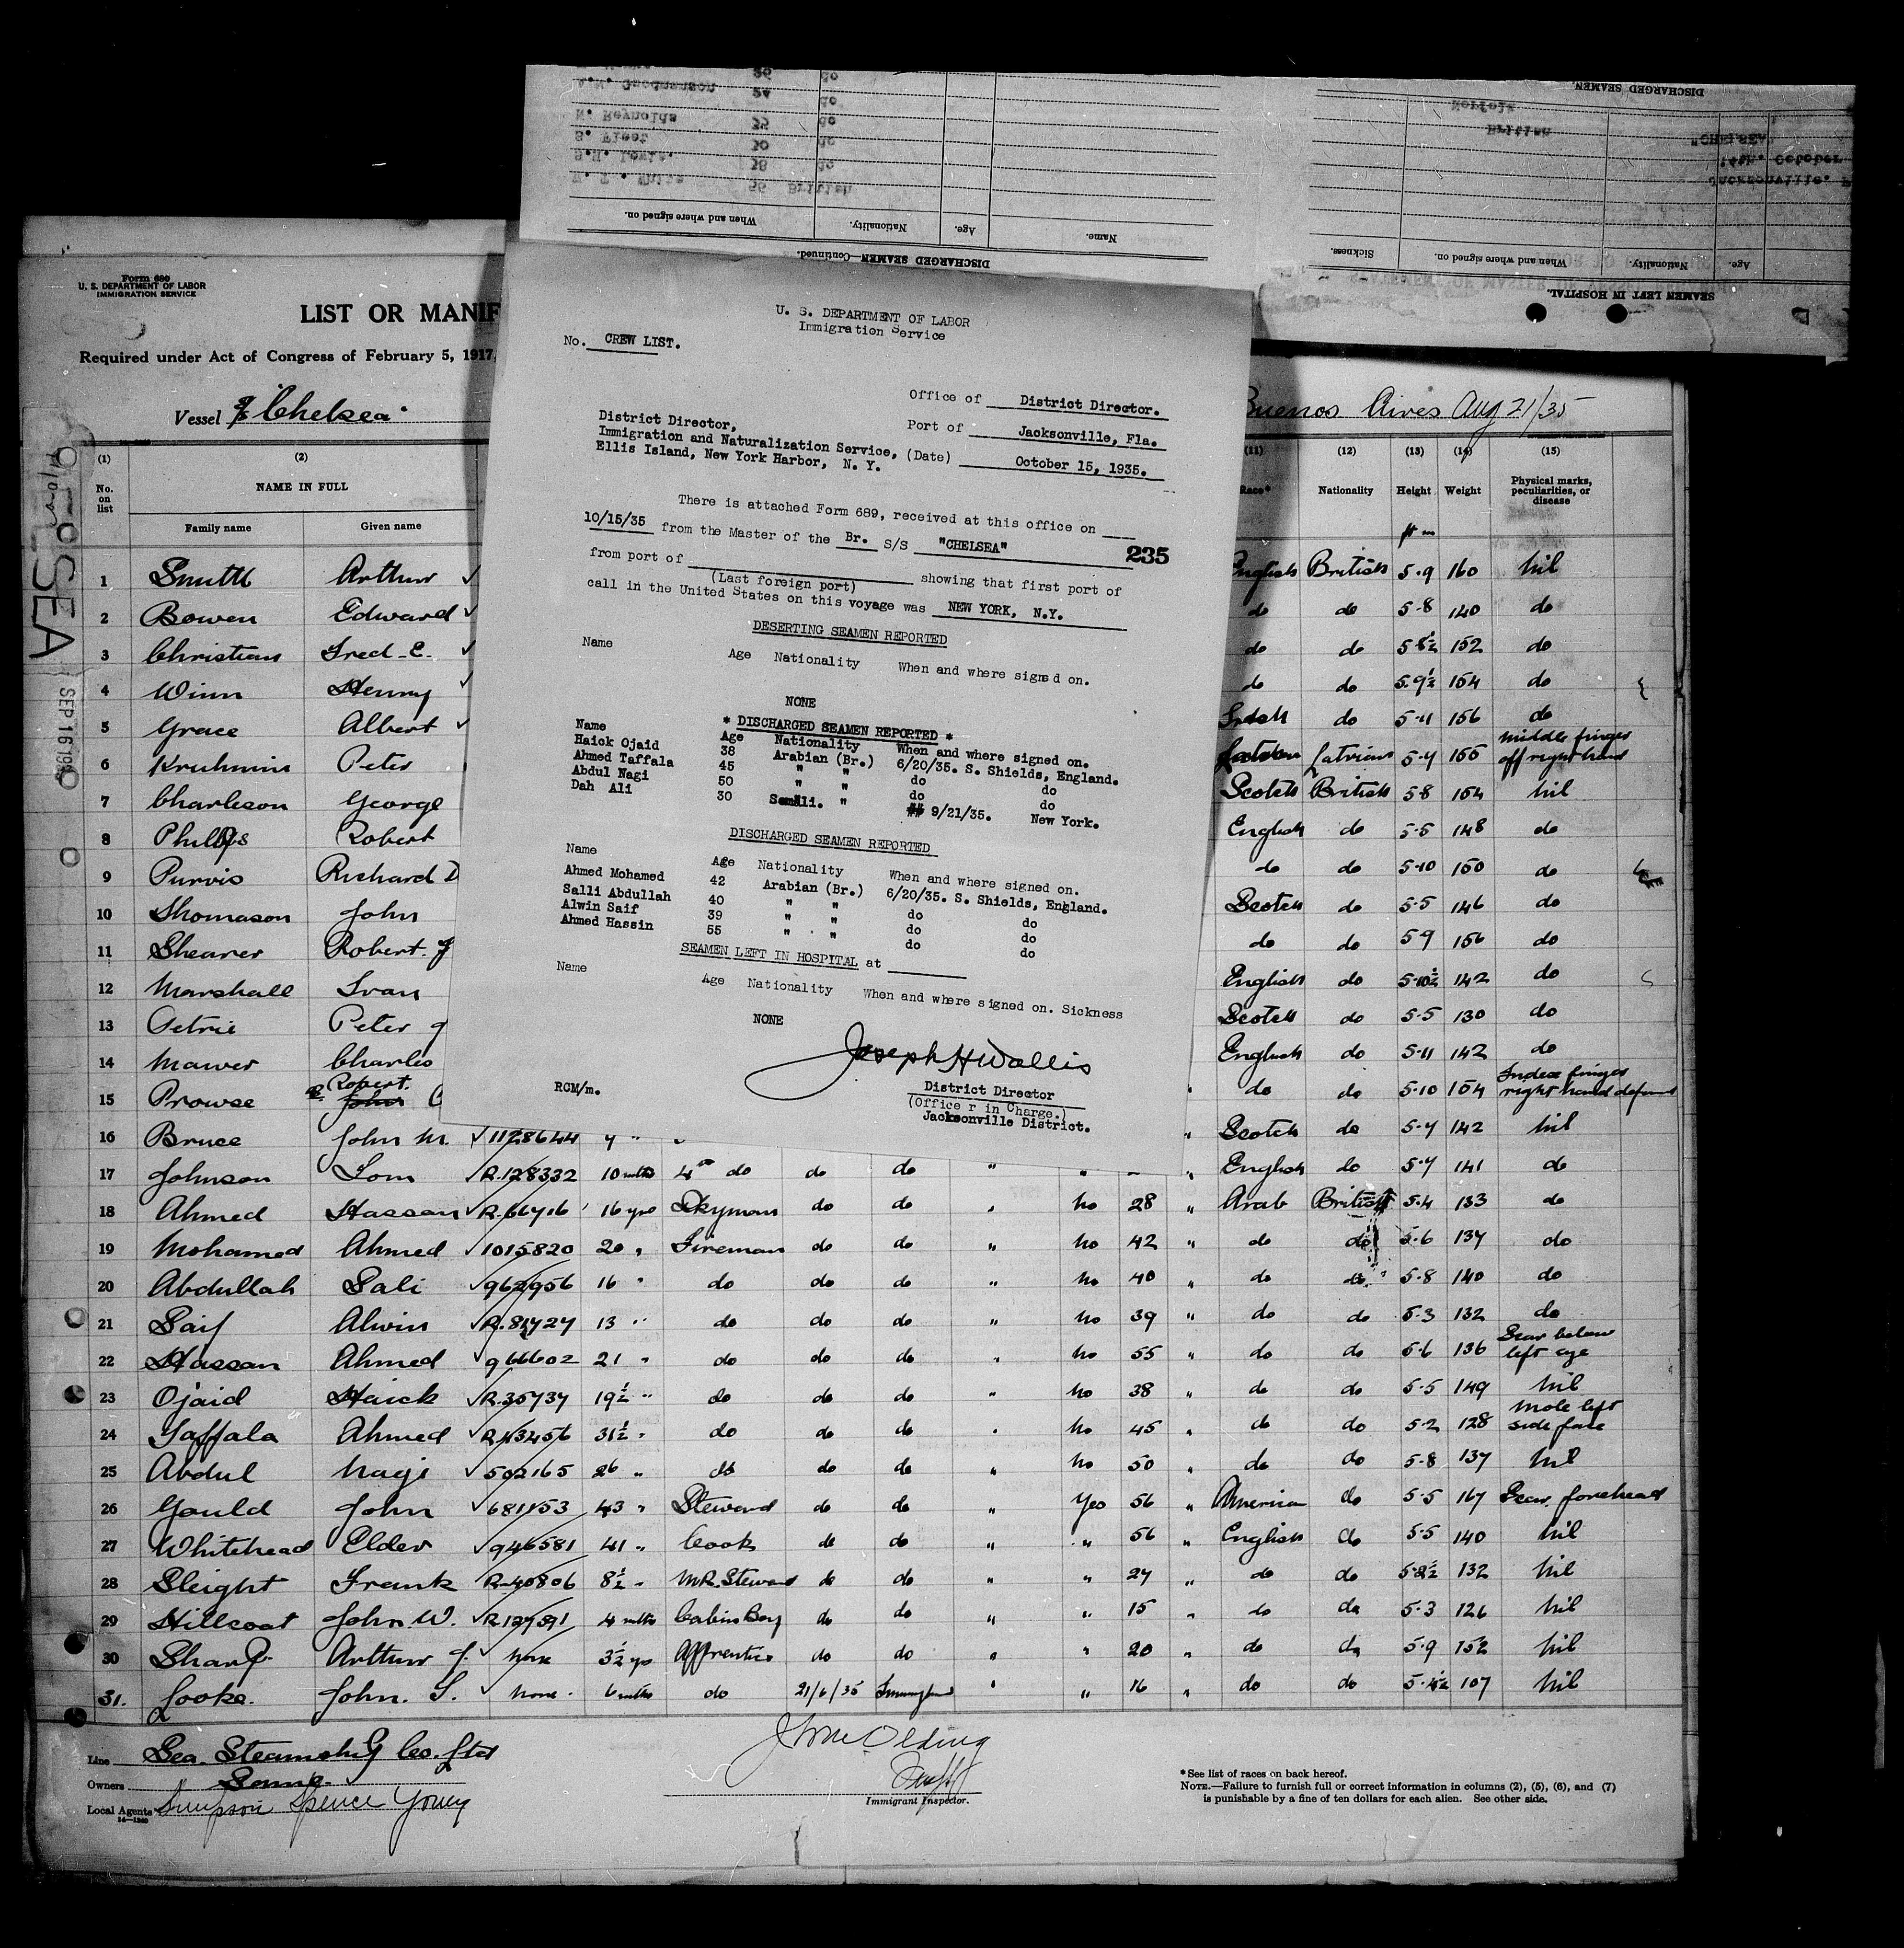 Form 680
U. S. DEPARTMENT OF LABOR
IMMIGRATION SERVICE
LIST OR MANIF
Required under Act of Congress of February 5, 1917,
Vessel S/S "Chelsea"
Buenos Aires Aug 21/35
SEP 16 1935
(1) (2) (11) (12) (13) (14) (15)
No. on list NAME IN FULL Race* Nationality Height Weight Physical marks, peculiarities, or disease
Family name Given name
ft in
1 Smith Arthur ✓ English British 5-9 160 nil
2 Bowen Edward ✓ do do 5-8 140 do
3 Christian Fred-E. ✓ do do 5-8½ 152 do
4 Winn Henry ✓ do do 5-9½ 154 do
5 Grace Albert ✓ Irish do 5-11 156 do
6 Kruhmin Peter Latvian 5-4 155 middle finger off right hand
7 Charleson George Scotch British 5-8 154 nil
8 Phillips Robert English do 5-5 148 do
9 Purvis Richard D do do 5-10 150 do
10 Thomason John Scotch do 5-5 146 do
11 Shearer Robert. J do do 5-9 156 do
12 Marshall Ivan English do 5-10½ 142 do
13 Petrie Peter J Scotch do 5-5 130 do
14 Mawer Charles English do 5-11 142 do
15 Prowse Robert John C do do 5-10 154 Index finger right hand
16 Bruce John M. ✓ 1128644 4 " " Scotch do 5-7 142 nil
17 Johnson Tom ✓ R.128332 10 mths 4th do do do " " " English do 5-7 141 do
18 Ahmed Hassan ✓ R.66716 16 yrs Dkyman do do " No 28 " Arab British 5-4 133 do
19 Mohamed Ahmed ✓ 1015820 20 " Fireman do do " No 42 " do do 5-6 137 do
20 Abdullah Sali ✓ 962956 16 " do do do " No 40 " do do 5-8 140 do
21 Saif Alwin ✓ R.81727 13 " do do do " No 39 " do do 5-3 132 do
22 Hassan Ahmed ✓ 966602 21 " do do do " No 55 " do do 5-6 136 Scar below left eye
23 Ojaid Haick ✓ R.35737 19½ " do do do " No 38 " do do 5-5 149 nil
24 Taffala Ahmed ✓ R.43456 31½ " do do do " No 45 " do do 5-2 128 Mole left side face
25 Abdul Nagi ✓ 502165 26 " do do do " No 50 " do do 5-8 137 nil
26 Gould John ✓ 681153 43 " Steward do do " Yes 56 " American do 5-5 167 Scar. forehead
27 Whitehead Elder ✓ 946581 41 " Cook do do " " 56 " English do 5-5 140 nil
28 Sleight Frank ✓ R.40806 8½ " M.R. Steward do do " " 27 " do do 5-8½ 132 nil
29 Hillcoat John W. ✓ R.127591 4 mths Cabin Boy do do " " 15 " do do 5-3 126 nil
30 Sharp Arthur J. ✓ None 3½ yrs Apprentice do do " " 20 " do do 5-9 152 nil
31. Looke. John. S. ✓ None. 6 mths do 21/6/35 Immingham " " 16 " do do 5-4½ 107 nil
Line Sea. Steamship Co. Ltd
Owners Same.
Local Agents Simpson Spence Young
Immigrant Inspector.
*See list of races on back hereof.
NOTE.—Failure to furnish full or correct information in columns (2), (5), (6), and (7)
is punishable by a fine of ten dollars for each alien. See other side.
U. S. DEPARTMENT OF LABOR
Immigration Service
No. CREW LIST.
Office of District Director.
Port of Jacksonville, Fla.
(Date) October 15, 1935.
District Director,
Immigration and Naturalization Service,
Ellis Island, New York Harbor, N. Y.
There is attached Form 689, received at this office on
10/15/35 from the Master of the Br. S/S "CHELSEA" 235
from port of showing that first port of
(Last foreign port)
call in the United States on this voyage was NEW YORK, N.Y.
DESERTING SEAMEN REPORTED
Name Age Nationality When and where signed on.
NONE
* DISCHARGED SEAMEN REPORTED *
Name Age Nationality When and where signed on.
Haick Ojaid 38 Arabian (Br.) 6/20/35. S. Shields, England.
Ahmed Taffala 45 " " do do
Abdul Nagi 50 " " do do
Dah Ali 30 Somali. " 9/21/35. New York.
DISCHARGED SEAMEN REPORTED
Name Age Nationality When and where signed on.
Ahmed Mohamed 42 Arabian (Br.) 6/20/35. S. Shields, England.
Salli Abdullah 40 " " do do
Alwin Saif 39 " " do do
Ahmed Hassin 55 " " do do
SEAMEN LEFT IN HOSPITAL at
Name Age Nationality When and where signed on. Sickness
NONE
Joseph H Wallis
RCM/m.
District Director
(Office r in Charge.)
Jacksonville District.
DISCHARGED SEAMEN—Continued.
Name. Age. Nationality. When and where signed on.
H. T. White 56 British
S.H. Lewis. 38 do
S. Fleet 30 do
N. Reynolds 35 do
A.W. Goodmanson 24 do
26 do
SEAMEN LEFT IN HOSPITAL.
Age. Nationality. When and where signed on. Sickness.
Jacksonville,
14th. October
"CHELSEA"
British
Norfolk
DISCHARGED SEAMEN.